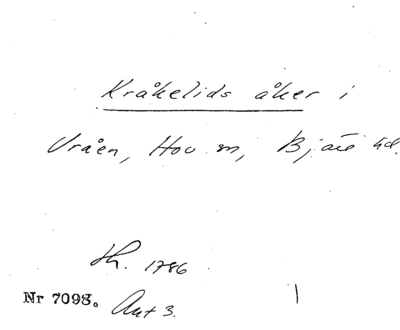 Kråkelids åker i
Vråen, Hov sn, Bjäre hd.
Lh. 1786
Nr 7098. Ant 3.